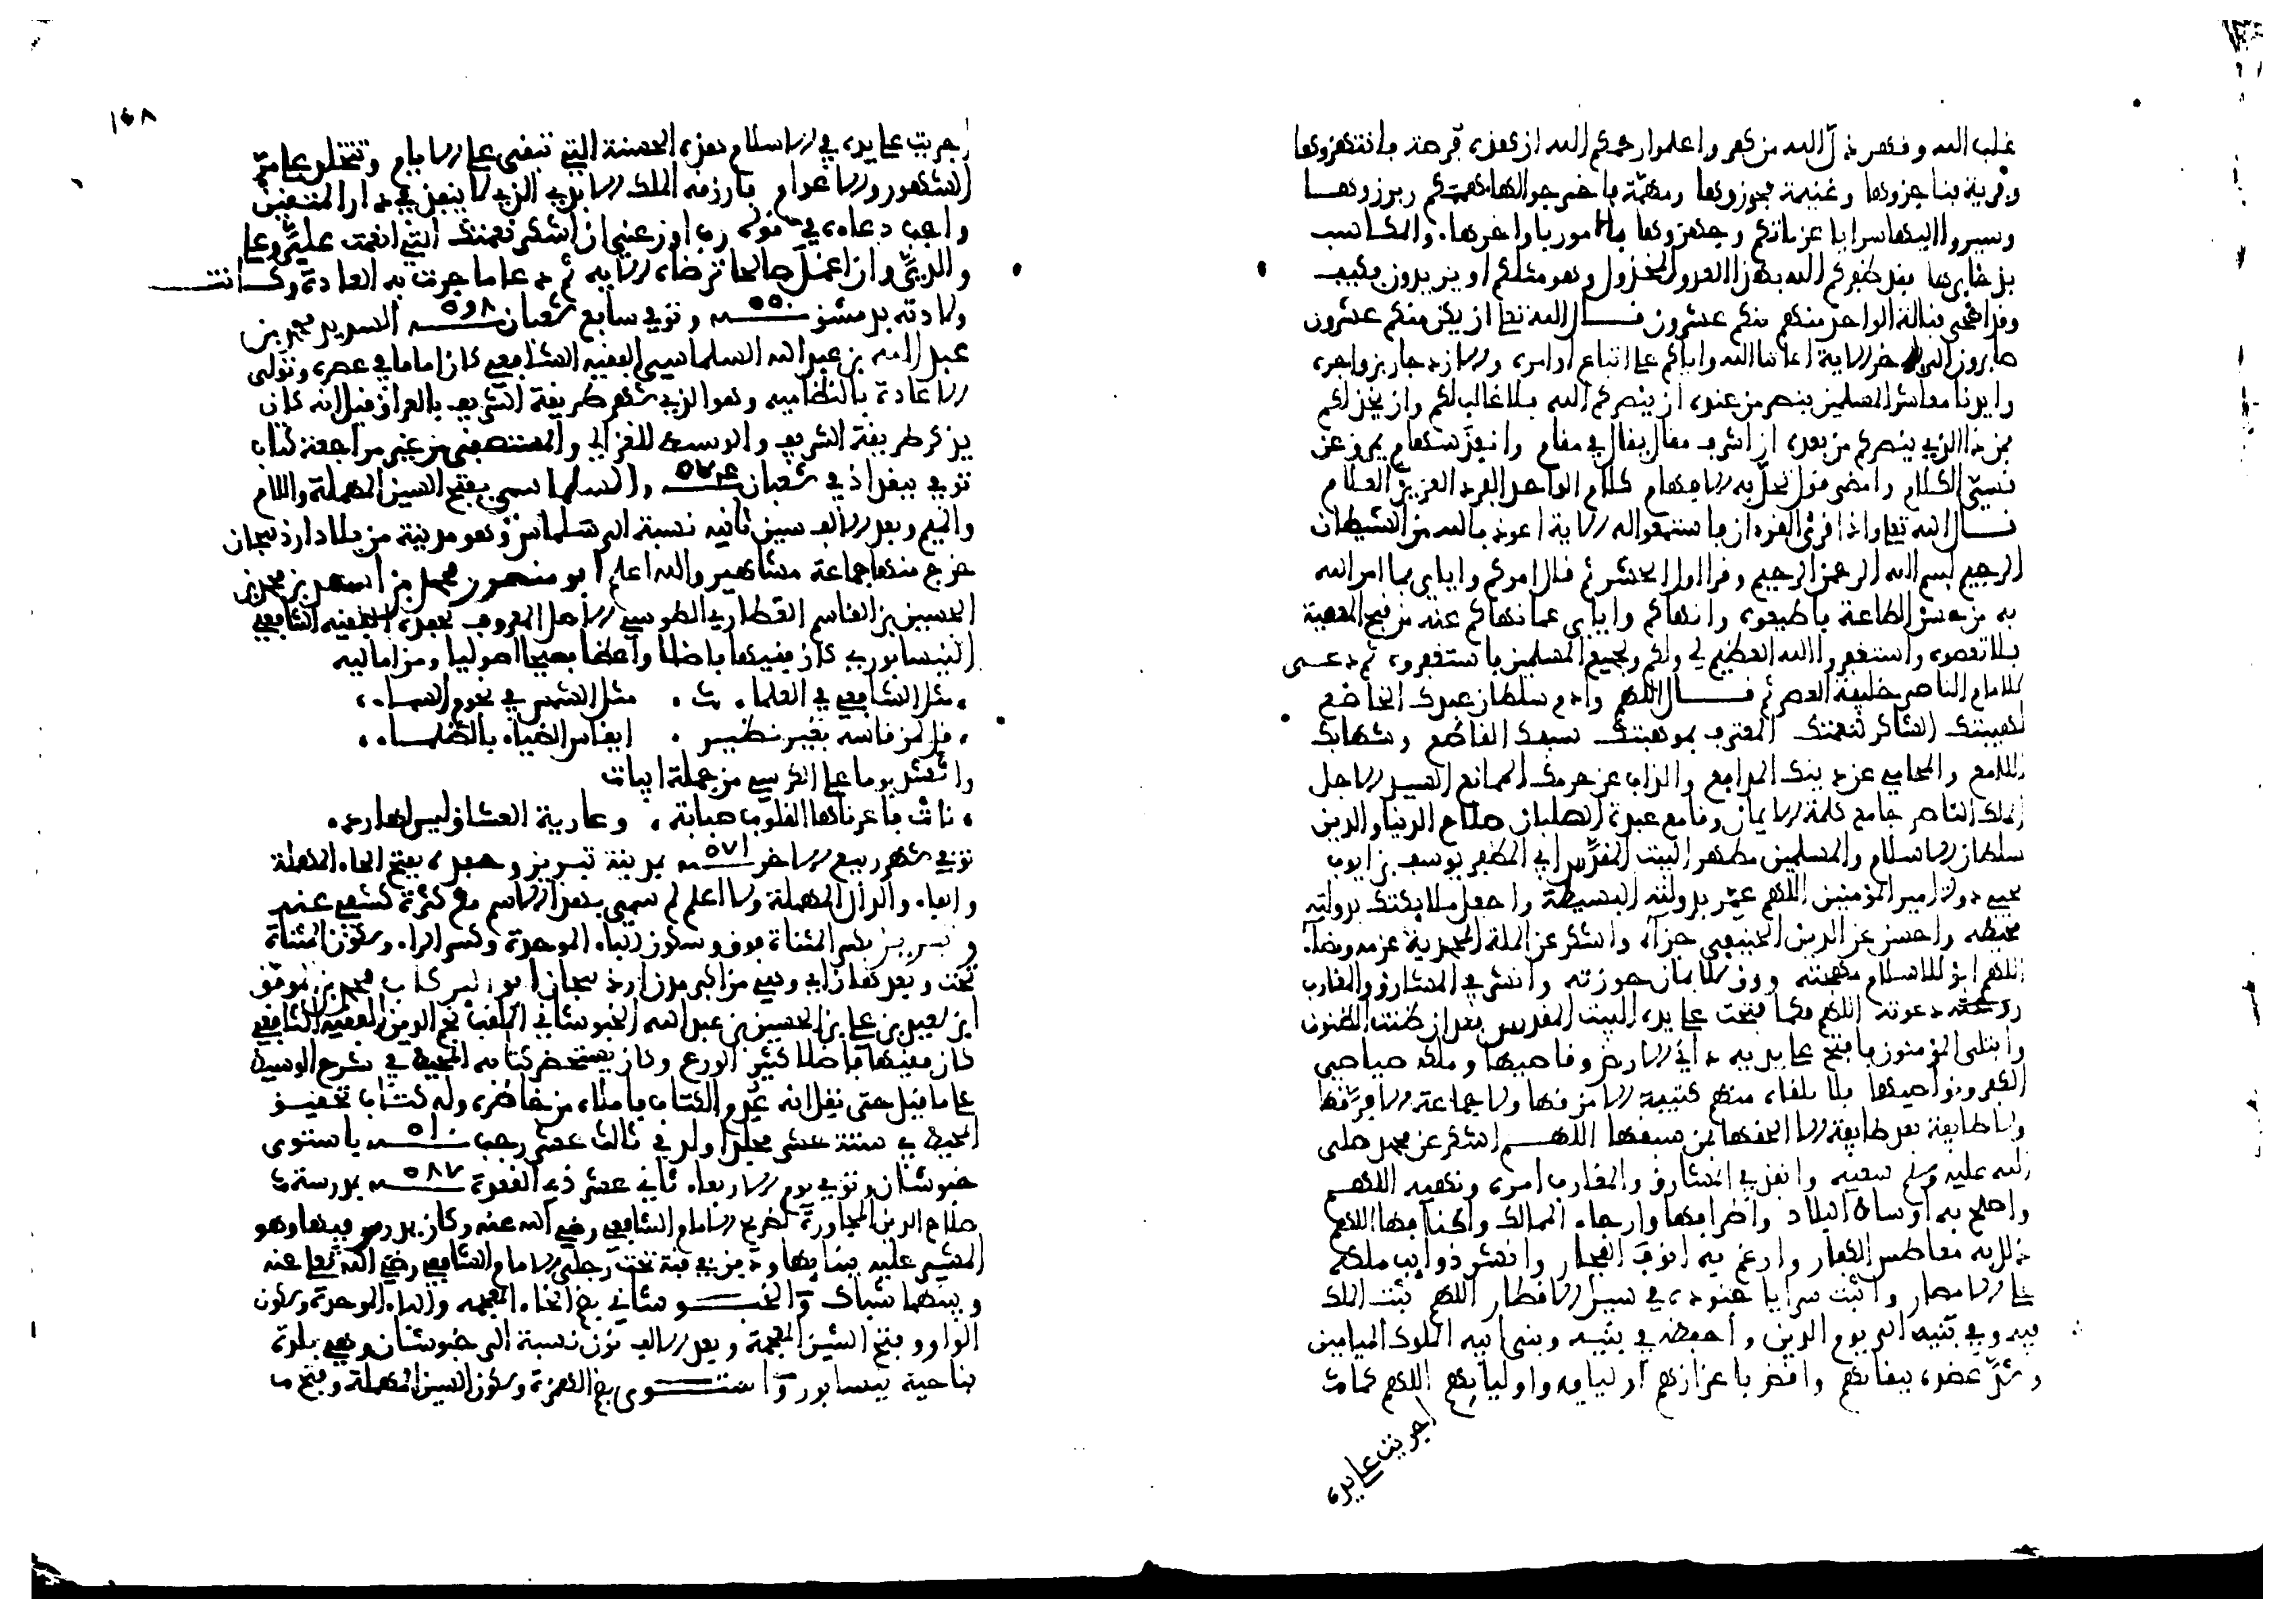 غلب الله وقهر وأذل الله من كفر واعلموا رحمكم الله ان هذه فرصة فانتهزوها
وفريسة فناجزوها وغنيمة فحوزوها ومهمة فاخرجوا لها هممكم وبرزوها
وسيروا اليها سرايا عزماتكم وجهزوها فالامور باواخرها والمكاسب
بذخايرها فقد ظفركم الله بهذا العدو المخذول وهم مثلكم او يزيدون فكيف
وقد اضحى قبالة الواحد منهم منكم عشرون قال الله تعالى ان يكن منكم عشرون
صابرون الى اخر الاية اعاننا الله واياكم على اتباع اوامره والازدجار بزواجره
وايدنا معاشر المسلمين بنصر من عنده ان ينصركم الله فلا غالب لكم وان يخذلكم
فمن ذا الذي ينصركم من بعده ان اشرف مقال يقال في مقام وانفذ سهام يمرق عن
قسي الكلام وامضى قول تحل به الافهام كلام الواحد الفرد العزيز العلام
قال الله تعالى واذا قرئ القرءان فاستمعوا له الاية اعوذ بالله من الشيطان
الرجيم بسم الله الرحمن الرحيم وقرا اول الحشر ثم قال امركم واياي بما امر الله
به من حسن الطاعة فاطيعوه وانهاكم واياي عما نهاكم عنه من قبح المعصية
فلا تعصوه واستغفر الله العظيم لي ولكم ولجميع المسلمين فاستغفروه ثم دعى
للامام الناصر خليفة العصر ثم قال اللهم وادم سلطان عبدك الخاضع
لهيبتك الشاكر لنعمتك المعترف بموهبتك سيفك القاطع وشهابك
اللامع والمحامي عن دينك المدافع والذاب عن حرمك الممانع السيد الاجل
الملك الناصر جامع كلمة الايمان وقامع عبدة الصلبان صلاح الدنيا والدين
سلطان الاسلام والمسلمين مطهر البيت المقدس ابي المظفر يوسف بن ايوب
محيي دولة امير المؤمنين اللهم عم بدولته البسيطة واجعل ملائكتك برايته
محيطه واحسن عن الدين الحنيفي جزآءه واشكر عن الملة المحمدية عزمه ومضاه
اللهم ابق للاسلام مهجته ووق للايمان حوزته وانشر في المشارق والمغارب
دعوته اللهم فكما فتحت على يده البيت المقدس بعد ان ظنت الظنون
وابتلى المؤمنون فافتح على يديه داني الارض وقاصيها وملكه صياصي
الكفر ونواصيها فلا يلقاه منهم كتيبة الا مزقها ولا جماعة الا فرقها
ولا طايفة بعد طايفة الا الحقها بمن سبقها اللهم اشكر عن محمد صلى
الله عليه وسلم سعيه وانفذ في المشارق والمغارب امره ونهيه اللهم
واصلح به اوساط البلاد واطرافها وارجاء الممالك واكنافها اللهم
ذلل به معاطس الكفار وارغم به انوف الفجار وانشر ذوايب ملكه
على الامصار واثبت سرايا جنوده في سبل الاقطار اللهم ثبت الملك
فيه وفي عقبه الى يوم الدين واحفظه في بنيه وبني ابيه الملوك الميامين
وشد عضده ببقائهم واقض باعزاز اوليايه واوليائهم اللهم كما
اجريت على يده
١٤٨
اجريت على يده في الاسلام هذه الحسنة التي تبقى على الايام وتتخلد على مر
الشهور والاعوام فارزقه الملك الابدي الذي لا ينفد في دار المتقين
واجب دعاءه في قوله رب اوزعني ان اشكر نعمتك التي انعمت علي وعلى
والدي وان اعمل صالحا ترضاه الاية ثم دعا ما جرت به العادة وكانت
ولادته بدمشق سنة ٥٥٠ وتوفي سابع شعبان سنة ٥٩٨ السديد محمد بن
عبد الله السلماسي الفقيه الشافعي كان اماما في عصره وتولى
الاعادة بالنظامية وهو الذي شهر طريقة الشريف بالعراق قيل انه كان
يذكر طريقة الشريف والوسيط للغزالي والمستصفى من غير مراجعة كتاب
توفي ببغداد في شعبان سنة ٥٧٤ والسلماسي بفتح السين المهملة واللام
والميم وبعد الالف سين ثانية نسبة الى سلماس وهو مدينة من بلاد اذربيجان
خرج منها جماعة مشاهير والله اعلم ابو منصور محمد بن اسعد بن محمد بن
الحسين بن القاسم العطاري الطوسي الاصل المعروف بحفدة الفقيه الشافعي
النيسابوري كان فقيها فاضلا واعظا فصيحا اصوليا ومن اماليه
مثل الشافعي في العلماء مثل الشمس في نجوم السماء
قل لمن قاسه بغير نظير ايقاس الضياء بالظلماء
وانشد يوما على الكرسي من جملة ابيات
فاعرناها القلوب صبابة وعارية العشاق ليس لها رد
توفي شهر ربيع الاخر سنة ٥٧١ بمدينة تبريز وحفدة بفتح الحاء المهملة
والفاء والدال المهملة ولا اعلم لم سمي بهذا الاسم مع كثرة كشفي عنه
وتبريز بكسر المثناة فوق وسكون الباء الموحدة وكسر الراء وسكون المثناة
تحت وبعدها زاي وهي من اكبر مدن اذربيجان ابو البركات محمد بن الموفق
ابن سعيد بن علي بن الحسين بن عبد الله الخبوشاني الملقب نجم الدين الفقيه الشافعي
كان فقيها فاضلا كثير الورع وكان يستحضر كتابه المحيط في شرح الوسيط
على ما قيل حتى نقل انه عدم الكتاب فاملاه من خاطره وله كتاب تحقيق
المحيط في ستة عشر مجلدا ولد في ثالث عشر رجب سنة ٥١٠ باستوى
خبوشان وتوفي يوم الاربعاء ثاني عشر ذي القعدة سنة ٥٨٧ بمدرسة
صلاح الدين المجاورة لضريح الامام الشافعي رضي الله عنه وكان يدرس فيها وهو
المشير عليه ببنايها ودفن في قبة تحت رجلي الامام الشافعي رضي الله تعالى عنه
وبينهما شباك والخبوشاني بضم الخاء المعجمه والباء الموحدة وسكون
الواو وفتح الشين المعجمة وبعد الالف نون نسبة الى خبوشان وهي بلدة
بناحية نيسابور واستوى بضم الهمزة وسكون السين المهملة وفتح